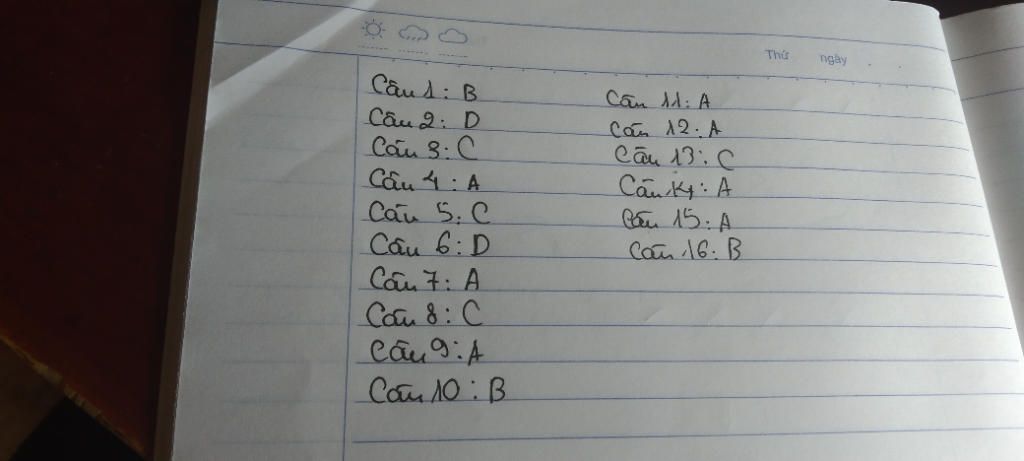 Thứ ngày
Câu 1: B
Câu 2: D
Câu 3: C
Câu 4: A
Câu 5: C
Câu 6: D
Câu 7: A
Câu 8: C
Câu 9: A
Câu 10: B
Câu 11: A
Câu 12: A
Câu 13: C
Câu 14: A
Câu 15: A
Câu 16: B